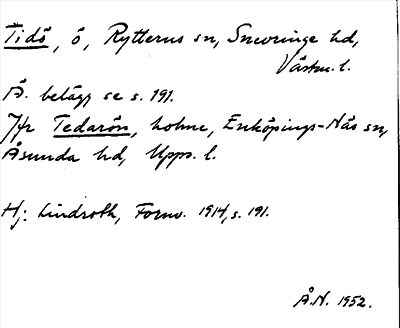 Tidö, ö, Rytterns sn, Snevringe hd,
Västm. l.
Ä. belägg se s. 191.
Jfr Tedarön, holme, Enköpings-Näs sn,
Åsunda hd, Upps. l.
Hj: Lindroth, Fornv. 1914, s. 191.
Å.N. 1952.